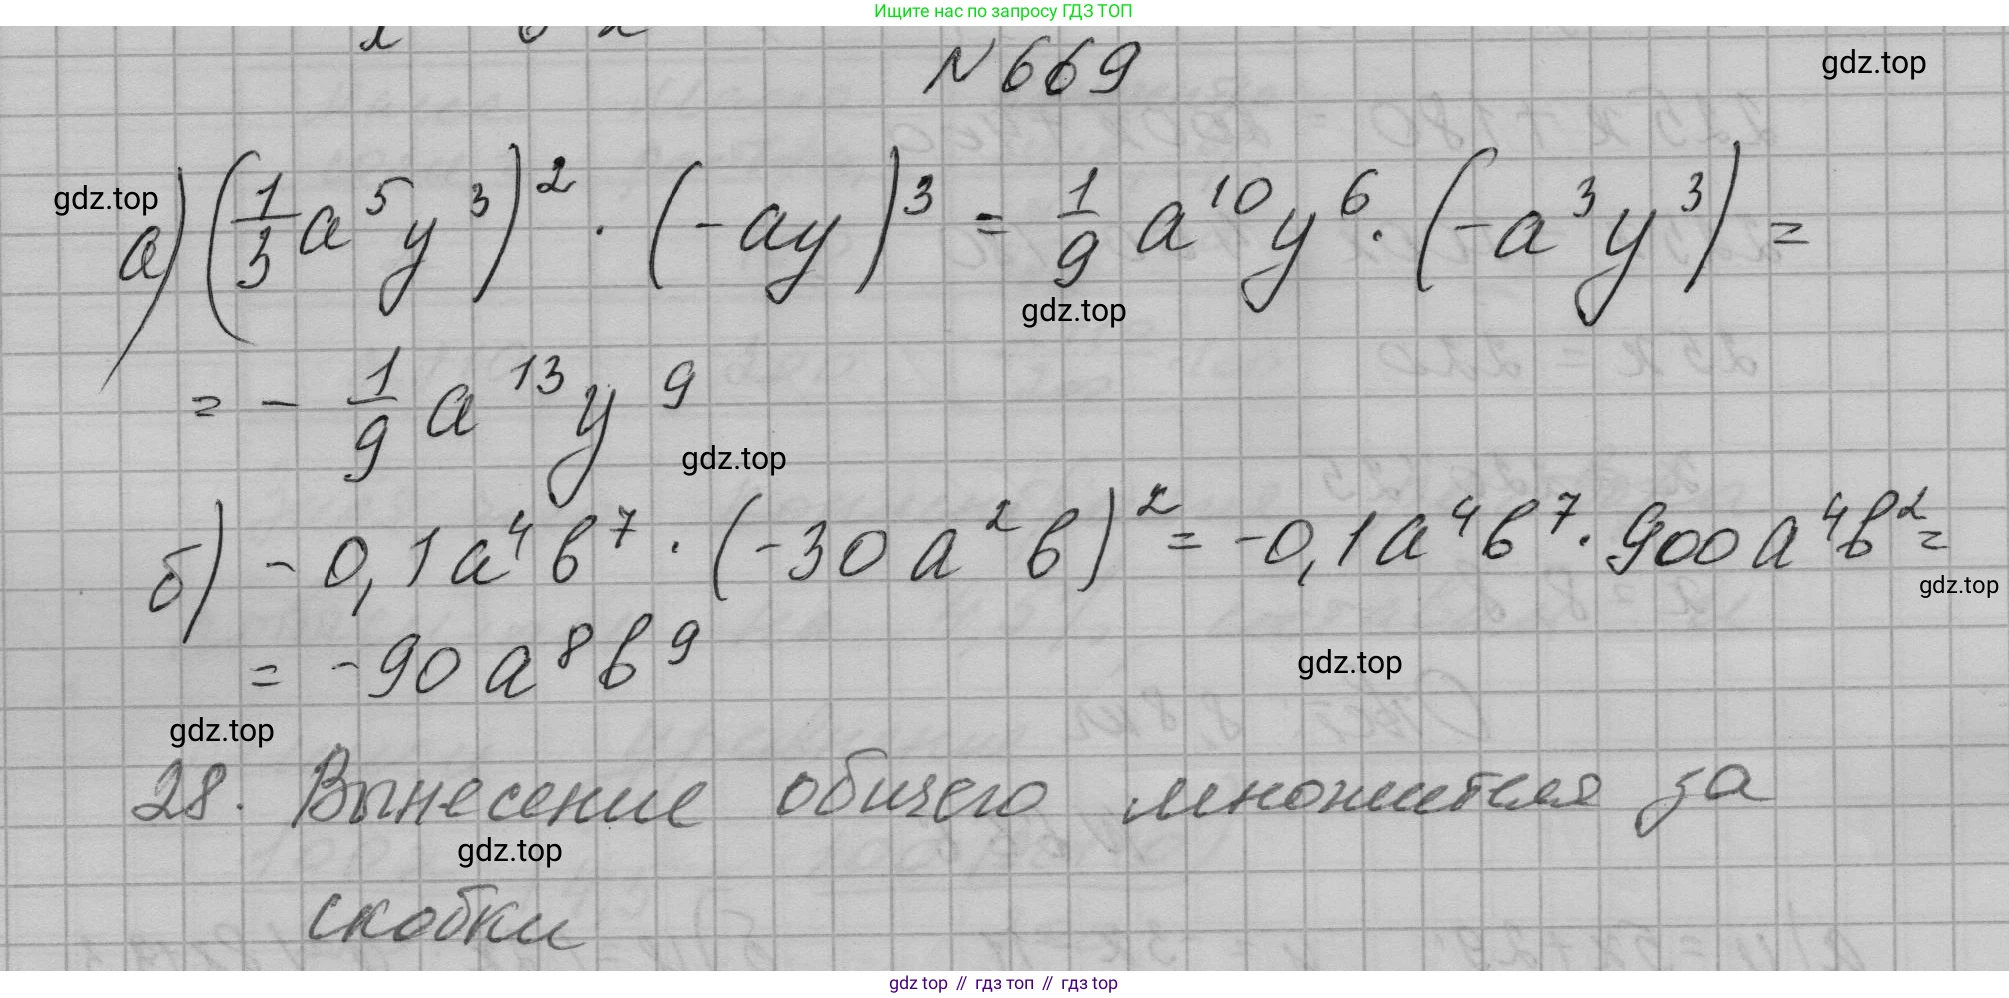 Ищите нас по запросу ГДЗ ТОП
N 669
gdz.top
gdz.top
а) (1/3 a⁵y³)² · (-ay)³ = 1/9 a¹⁰y⁶ · (-a³y³) =
gdz.top
= - 1/9 a¹³y⁹
gdz.top
б) -0,1a⁴b⁷ · (-30a²b)² = -0,1a⁴b⁷ · 900a⁴b² =
gdz.top
= -90a⁸b⁹
gdz.top
gdz.top
28. Вынесение общего множителя за
gdz.top
скобки
gdz top // гдз топ // gdz top